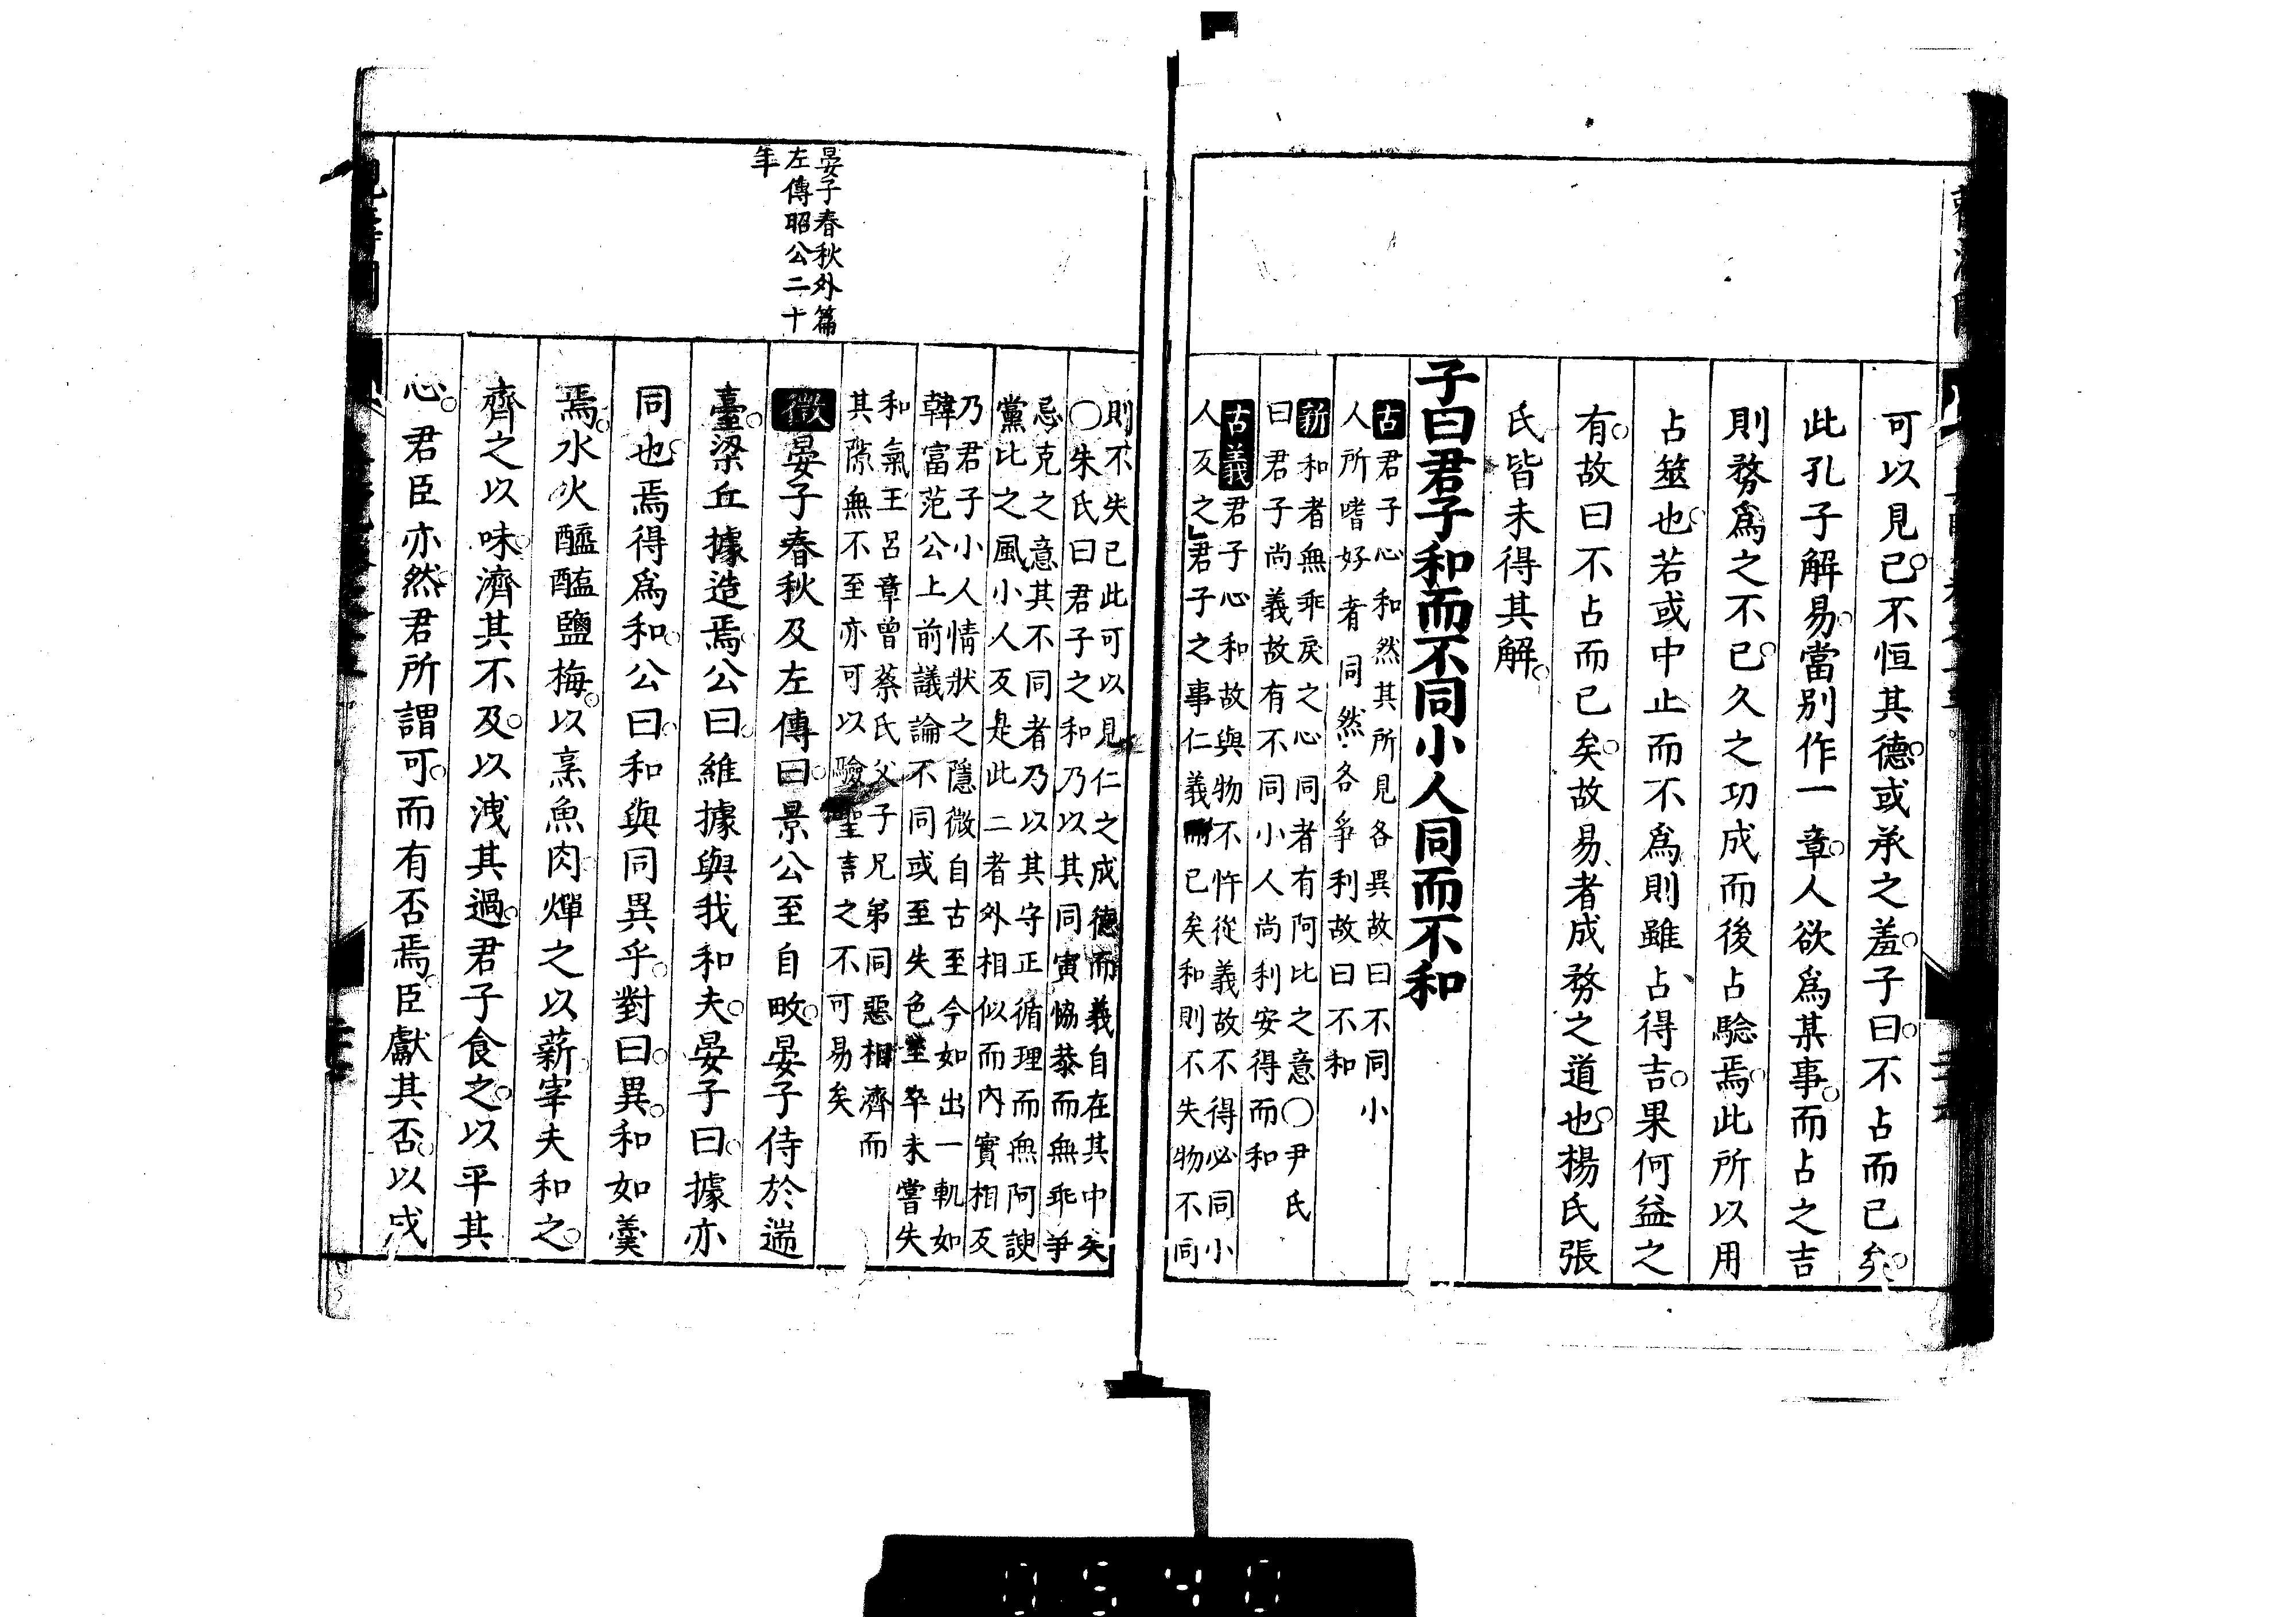 可以見已不恒其德或承之羞子曰不占而已矣
此孔子解易當別作一章人欲爲某事而占之吉
則務爲之不已久之功成而後占驗焉此所以用
占筮也若或中止而不爲則雖占得吉果何益之
有故曰不占而已矣故易者成務之道也楊氏張
氏皆未得其解
子曰君子和而不同小人同而不和
古君子心和然其所見各異故曰不同小
人所嗜好者同然各爭利故曰不和
新和者無乖戾之心同者有阿比之意〇尹氏
曰君子尚義故有不同小人尚利安得而和
古義君子心和故與物不忤從義故不得必同小
人反之君子之事仁義而已矣和則不失物不同
則不失己此可以見仁之成德而義自在其中矣
〇朱氏曰君子之和乃以其同寅協恭而無乖爭
忌克之意其不同者乃以其守正循理而無阿諛
黨比之風小人反是此二者外相似而内實相反
乃君子小人情狀之隱微自古至今如出一軌如
韓富范公上前議論不同或至失色至卒未嘗失
和氣王呂章曾蔡氏父子兄弟同惡相濟而
其隙無不至亦可以驗聖言之不可易矣
晏子春秋外篇
左傳昭公二十
年
徵晏子春秋及左傳曰景公至自畋晏子侍於遄
臺梁丘據造焉公曰維據與我和夫晏子曰據亦
同也焉得爲和公曰和與同異乎對曰異和如羹
焉水火醯醢鹽梅以烹魚肉燀之以薪宰夫和之
齊之以味濟其不及以洩其過君子食之以平其
心君臣亦然君所謂可而有否焉臣獻其否以成
0540